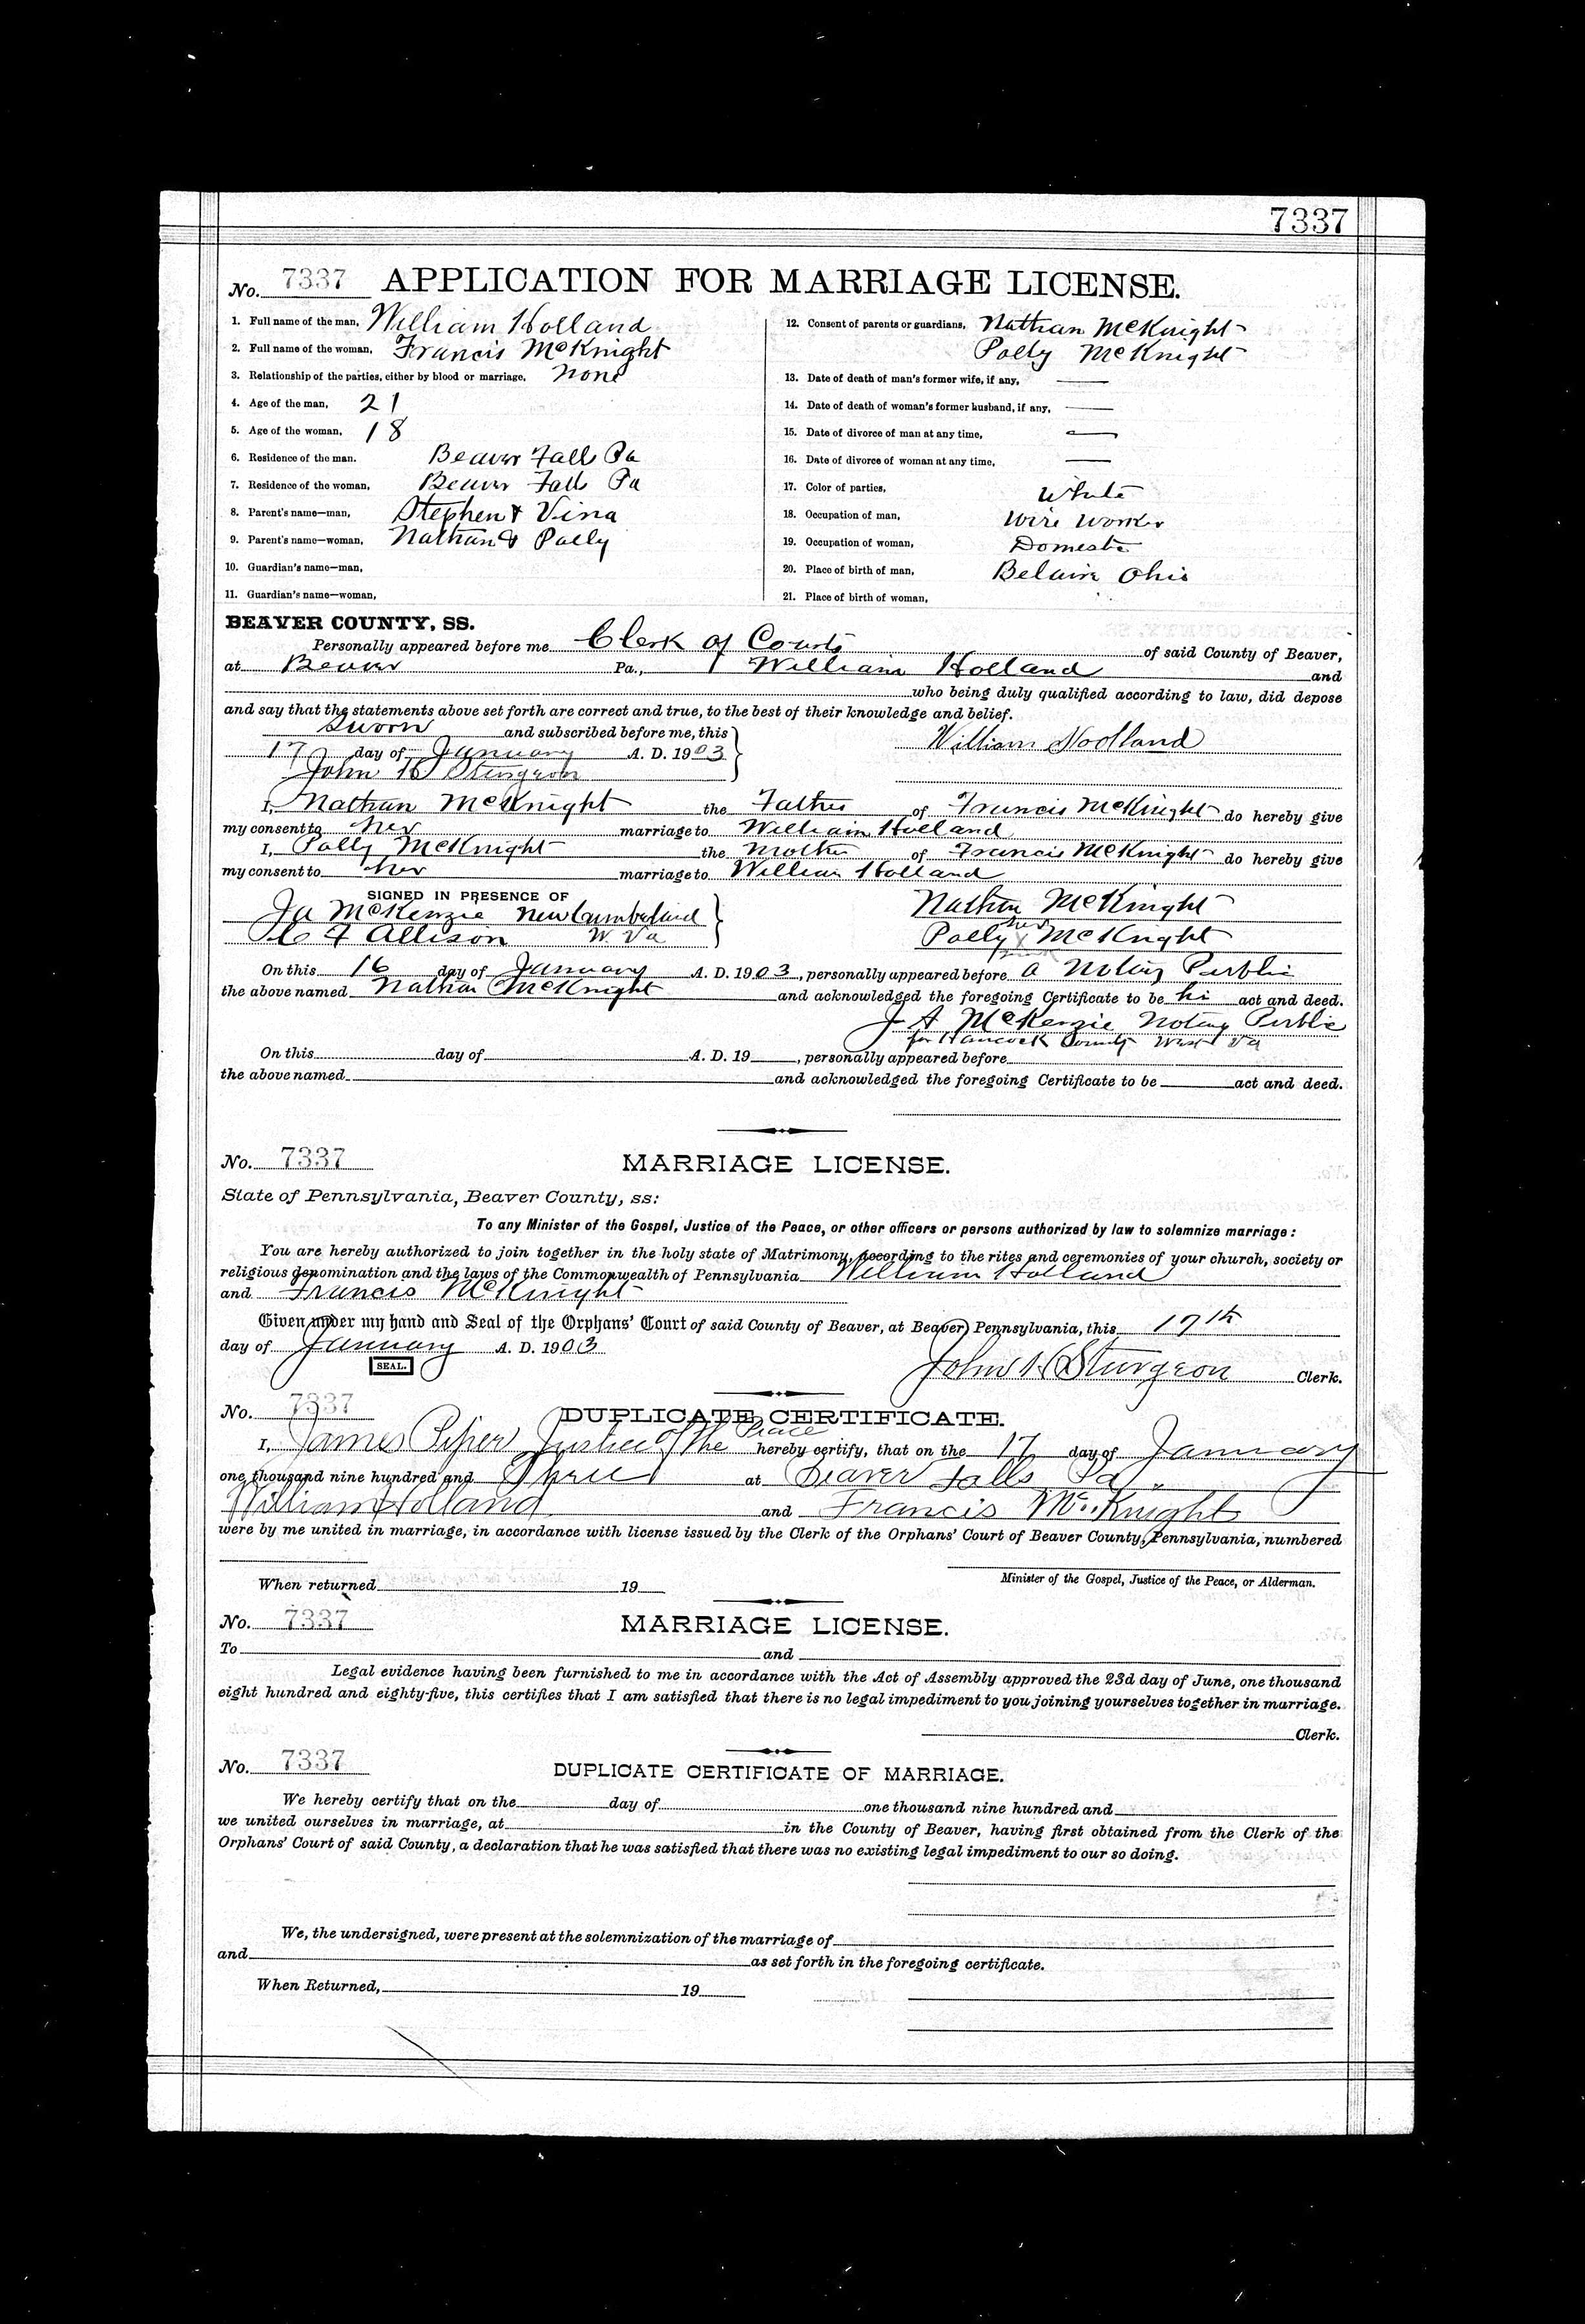 7337
No. 7337 APPLICATION FOR MARRIAGE LICENSE.
1. Full name of the man, William Holland
2. Full name of the woman, Francis McKnight
3. Relationship of the parties, either by blood or marriage, None
4. Age of the man, 21
5. Age of the woman, 18
6. Residence of the man. Beaver Falls Pa
7. Residence of the woman, Beaver Falls Pa
8. Parent's name—man, Stephen & Vina
9. Parent's name—woman, Nathan & Polly
10. Guardian's name—man,
11. Guardian's name—woman,
12. Consent of parents or guardians, Nathan McKnight
Polly McKnight
13. Date of death of man's former wife, if any, —
14. Date of death of woman's former husband, if any, —
15. Date of divorce of man at any time, —
16. Date of divorce of woman at any time, —
17. Color of parties, White
18. Occupation of man, Wire Worker
19. Occupation of woman, Domestic
20. Place of birth of man, Belaire Ohio
21. Place of birth of woman,
BEAVER COUNTY, SS.
Personally appeared before me Clerk of Courts of said County of Beaver,
at Beaver Pa., William Holland and
who being duly qualified according to law, did depose
and say that the statements above set forth are correct and true, to the best of their knowledge and belief.
Sworn and subscribed before me, this
17 day of January A. D. 1903 William Holland
John Sturgeon
I, Nathan McKnight the Father of Francis McKnight do hereby give
my consent to her marriage to William Holland
I, Polly McKnight the Mother of Francis McKnight do hereby give
my consent to her marriage to William Holland
SIGNED IN PRESENCE OF
Ja McKenzie New Cumberland Nathan McKnight
F Allison W. Va Polly her x mark McKnight
On this 16 day of January A. D. 1903, personally appeared before a Notary Public
the above named Nathan McKnight and acknowledged the foregoing Certificate to be his act and deed.
J A McKenzie Notary Public
for Hancock County West Va
On this day of A. D. 19 , personally appeared before
the above named and acknowledged the foregoing Certificate to be act and deed.
No. 7337 MARRIAGE LICENSE.
State of Pennsylvania, Beaver County, ss:
To any Minister of the Gospel, Justice of the Peace, or other officers or persons authorized by law to solemnize marriage:
You are hereby authorized to join together in the holy state of Matrimony, according to the rites and ceremonies of your church, society or
religious denomination and the laws of the Commonwealth of Pennsylvania William Holland
and Francis McKnight
Given under my hand and Seal of the Orphans' Court of said County of Beaver, at Beaver, Pennsylvania, this 17th
day of January A. D. 1903
SEAL. John Sturgeon Clerk.
No. 7337 DUPLICATE CERTIFICATE.
I, James Piper Justice of the Peace hereby certify, that on the 17 day of January
one thousand nine hundred and Three at Beaver Falls Pa
William Holland and Francis McKnight
were by me united in marriage, in accordance with license issued by the Clerk of the Orphans' Court of Beaver County, Pennsylvania, numbered
Minister of the Gospel, Justice of the Peace, or Alderman.
When returned 19
No. 7337 MARRIAGE LICENSE.
To and
Legal evidence having been furnished to me in accordance with the Act of Assembly approved the 23d day of June, one thousand
eight hundred and eighty-five, this certifies that I am satisfied that there is no legal impediment to you joining yourselves together in marriage.
Clerk.
No. 7337 DUPLICATE CERTIFICATE OF MARRIAGE.
We hereby certify that on the day of one thousand nine hundred and
we united ourselves in marriage, at in the County of Beaver, having first obtained from the Clerk of the
Orphans' Court of said County, a declaration that he was satisfied that there was no existing legal impediment to our so doing.
We, the undersigned, were present at the solemnization of the marriage of
and as set forth in the foregoing certificate.
When Returned, 19